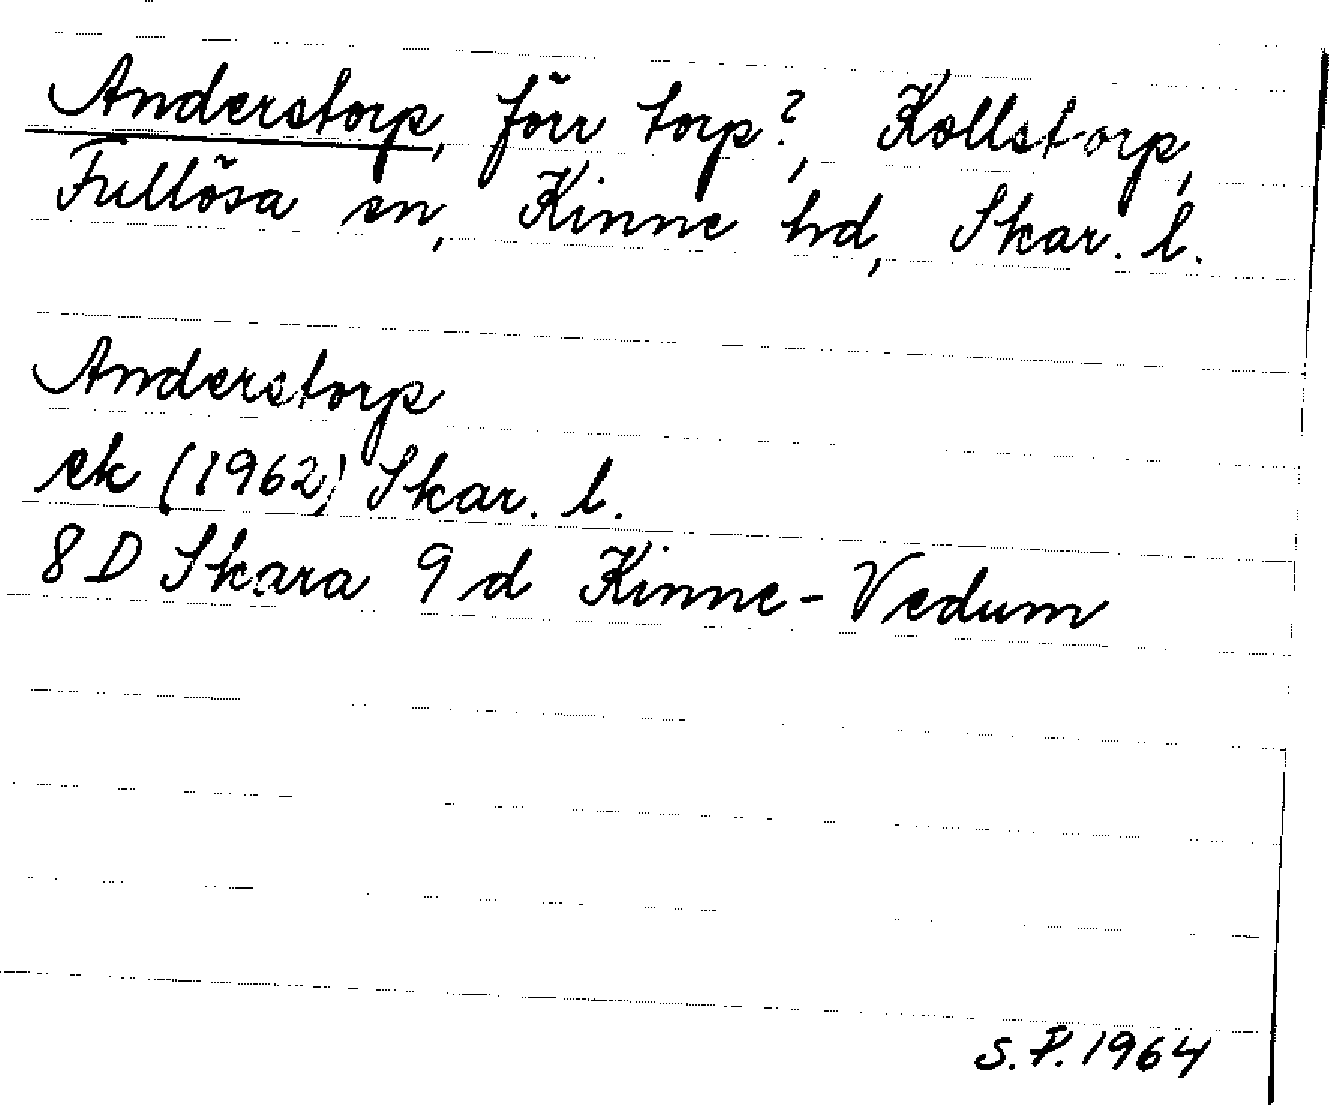 Anderstorp, förr torp?, Kollstorp,
Fullösa sn, Kinne hd, Skar. l.
Anderstorp
ek (1962) Skar. l.
8 D Skara 9 d Kinne-Vedum
S.P. 1964